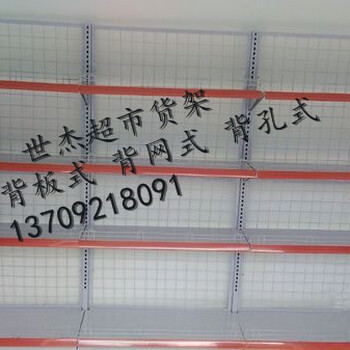 世杰超市货架
背板式 背网式 背孔式
13709218091